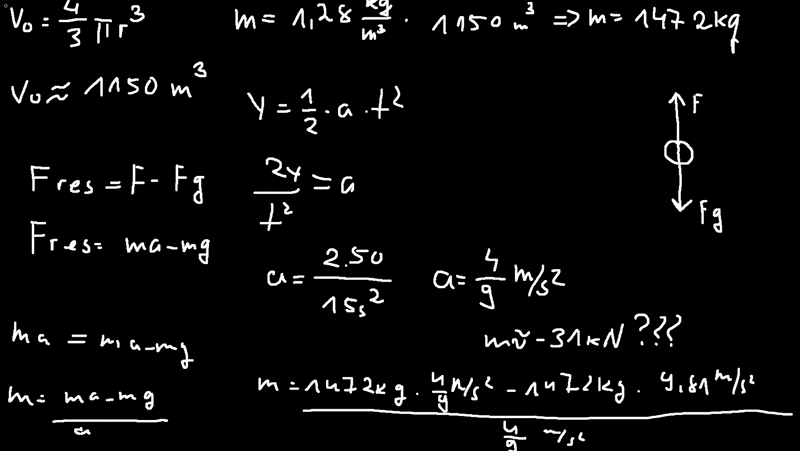 V₀ = 4/3 πr³
m = 1,28 kg/m³ · 1150 m³ => m = 1472kg
V₀ ≈ 1150 m³
Y = 1/2 · a · t²
F
Fres = F - Fg
2Y/t² = a
Fg
Fres = ma - mg
a = 2.50/15s²
a = 4/9 m/s²
m ≈ -31kN ???
ma = ma - mg
m = (ma - mg)/a
m = (1472kg · 4/9 m/s² - 1472kg · 9,81 m/s²)/(4/9 m/s²)